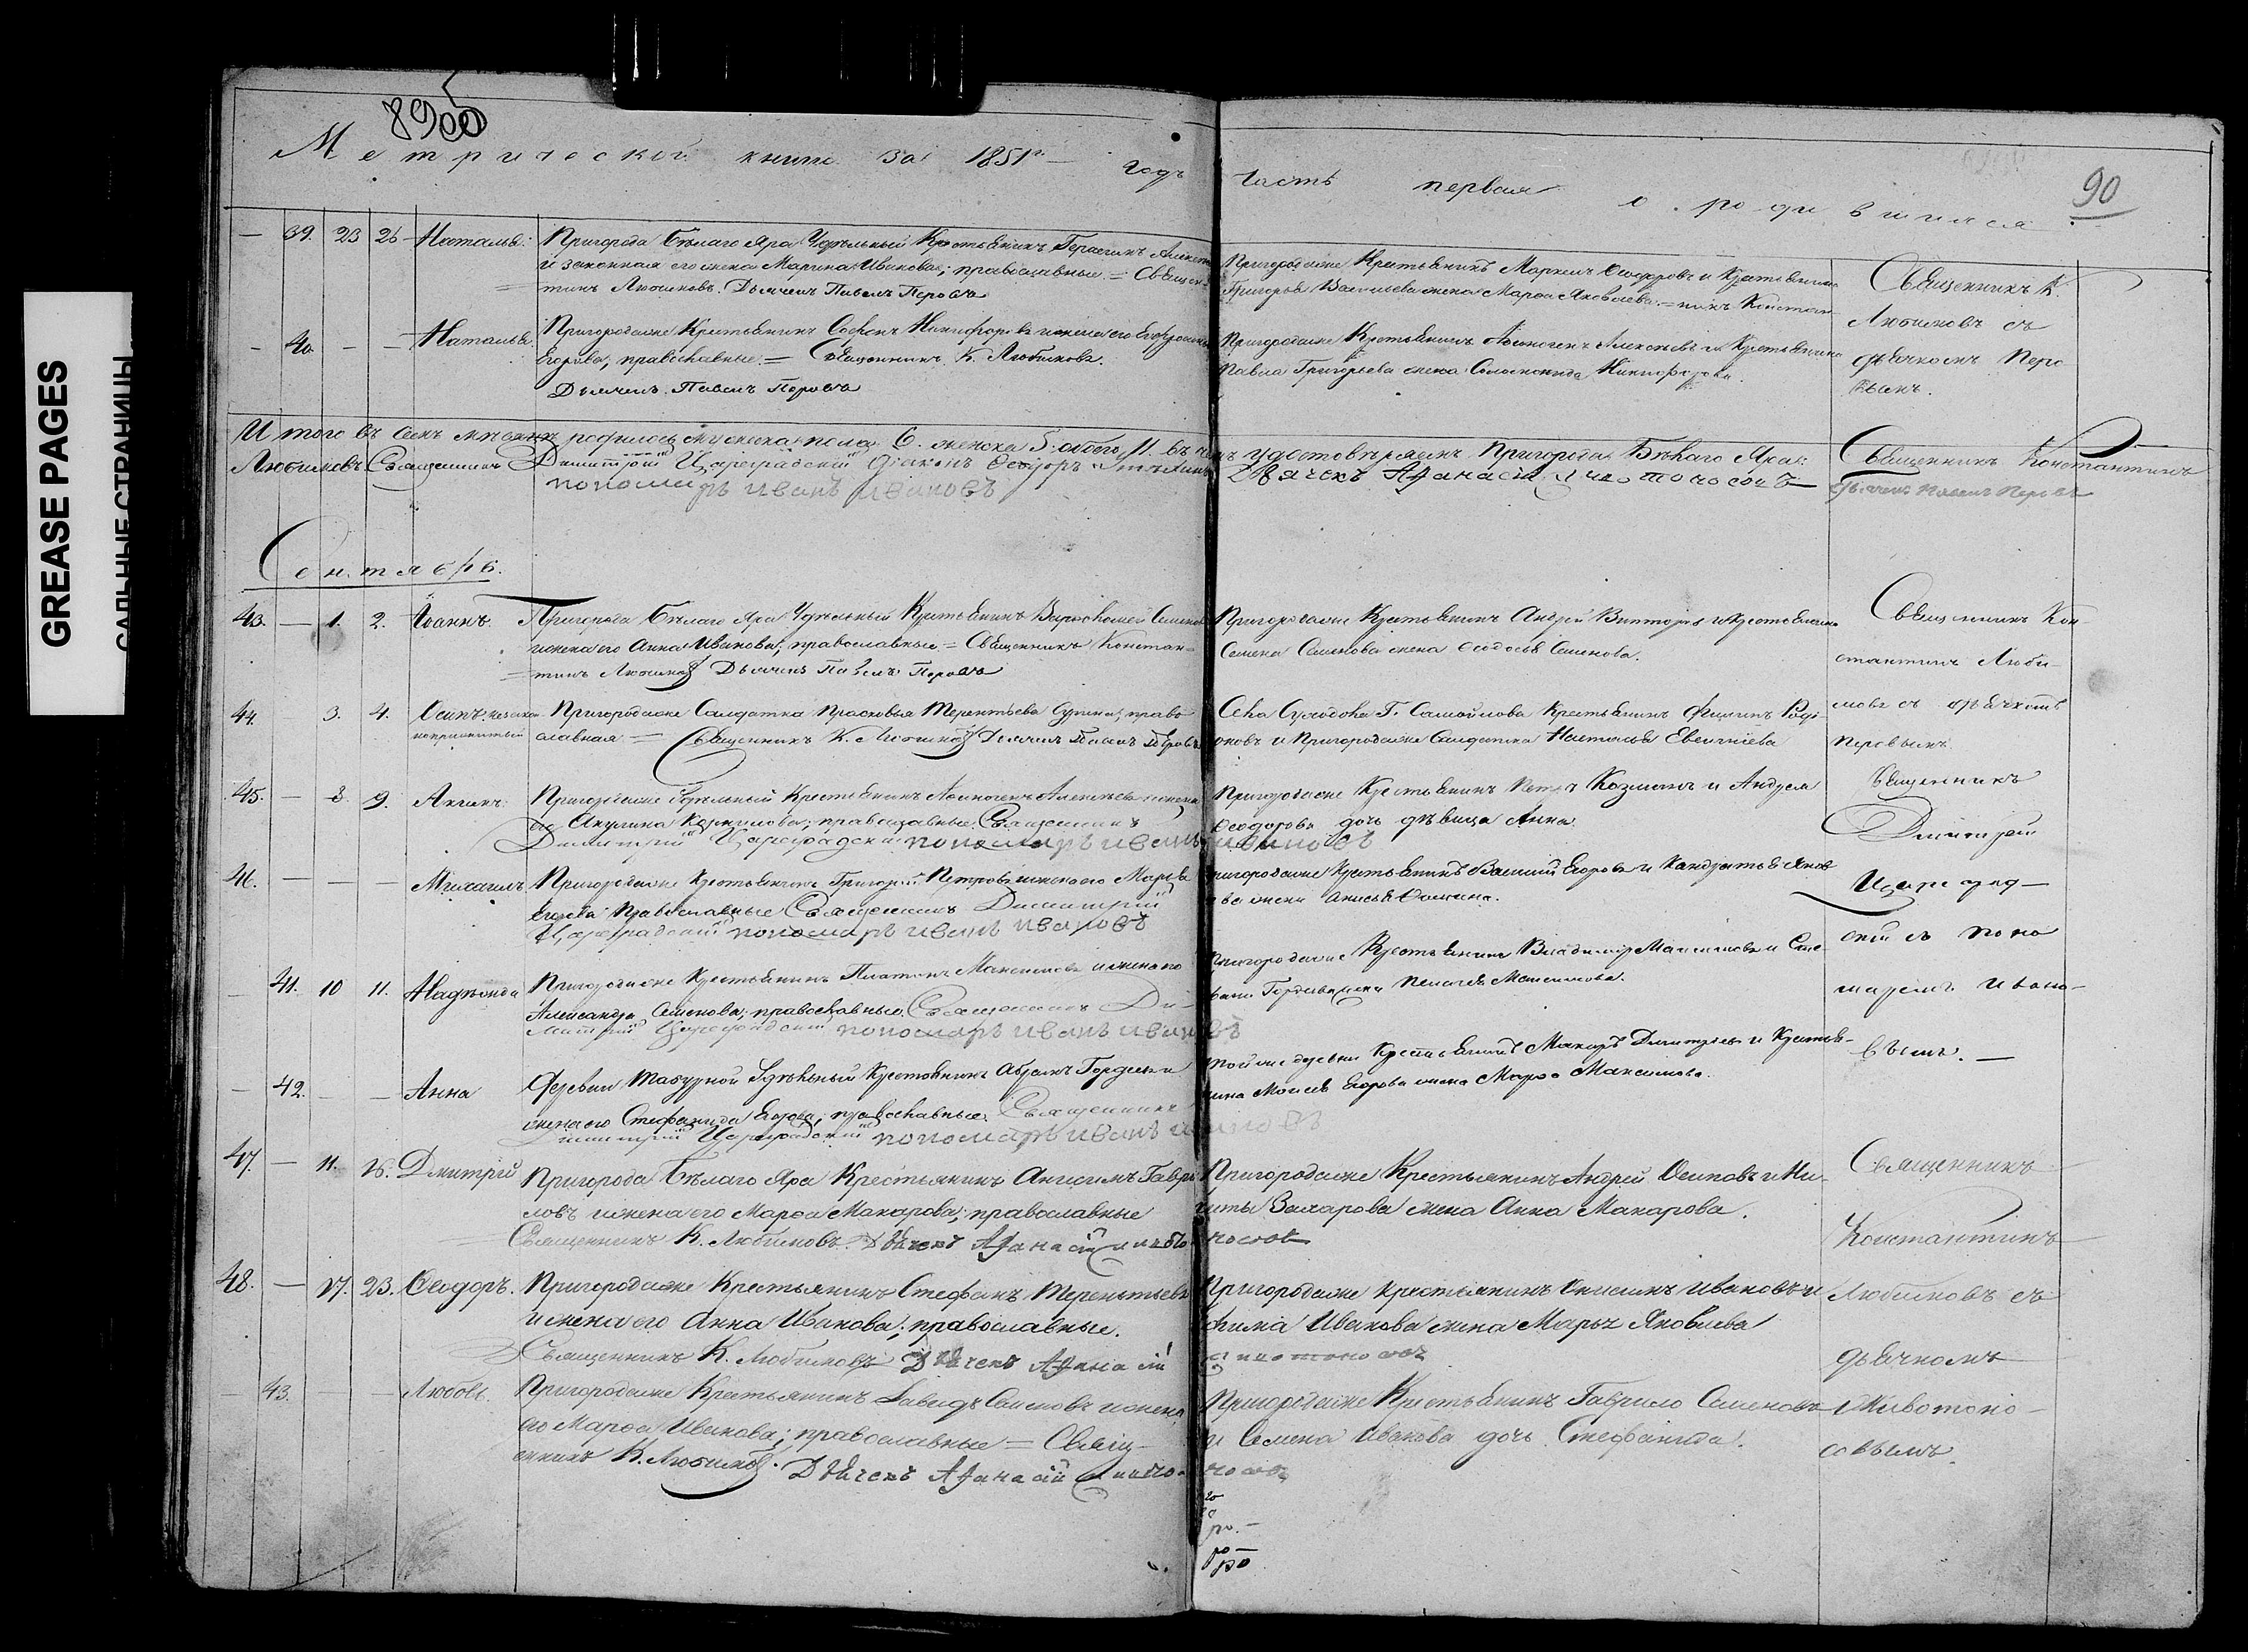 GREASE PAGES
САЛЬНЫЕ СТРАНИЦЫ
Метрической книги за 1851й годъ
часть первая о родившихся
90
39. 23 26 Наталья. Пригорода Бѣлаго Яра Удѣльный Крестьянинъ Герасимъ
и законная его жена Марина Иванова; православные = Священ-
тинъ Любимовъ. Дьячекъ Павелъ Перовъ
Пригородские Крестьянинъ Маркелъ Феодоровъ и Крестьянина
Григорья Васильева жена Марфа Яковлева. = никъ Констан-
Священникъ К.
Любимовъ съ
дьячкомъ Перо
вымъ.
40. Наталья. Пригородские Крестьянинъ Софонъ Никифоровъ и жена его Евфросинья
Егорова, православные. = Священникъ К. Любимовъ.
Дьячекъ Павелъ Перовъ
Пригородские Крестьянинъ Афиногенъ Алексѣевъ и Крестьянина
Павла Григорьева жена Соломонида Никифорова.
Итого въ семъ мѣсяцѣ родилось мужеска пола 6. женска 5. обоего 11. въ чемъ удостовѣряемъ Пригорода Бѣлаго Яра: Священникъ Константинъ
Любимовъ. Священникъ Димитрій Цареградскій Діаконъ Феодоръ
пономарь иванъ ивановъ
Дьячекъ Афанасій Животоносовъ
Дьячекъ Павелъ Перовъ
Сентябрь.
43. — 1. 2. Іоаннъ. Пригорода Бѣлаго Яра Удѣльный Крестьянинъ Варфоломей Семеновъ
и жена его Анна Иванова; православные = Священникъ Констан-
тинъ Любимовъ Дьячекъ Павелъ Перовъ
Пригородские Крестьянинъ Андрей Викторовъ и Крестьянина
Семена Семенова жена Феодосья Семенова.
Священникъ Кон-
стантинъ Люби-
мовъ съ дьячкомъ
Перовымъ.
44. 3. 4. Осипъ. незакон-
норожитый
Пригородские Солдатка Прасковья Терентьева Сурина, право-
славная = Священникъ К. Любимовъ Дьячекъ Павелъ Перовъ
Села Суходола Г. Самойлова Крестьянинъ Филипъ Роди-
оновъ и Пригородские Солдатка Наталья Евсигнѣева
45. — 8. 9. Акимъ. Пригородские Удѣльный Крестьянинъ Афиногенъ Алексѣевъ и жена
его Акулина Корнилова; православные. Священникъ
Димитрій Цареградскій пономарь иванъ ивановъ
Пригородские Крестьянинъ Петръ Козминъ и Андрея
Феодорова дочь дѣвица Анна.
Священникъ
Димитрій
Цареград-
скій съ поно
маремъ Ивано-
вымъ. —
46. — — — Михаилъ. Пригородские Крестьянинъ Григорій Петровъ и жена его Марфа
Егорова Православные Священникъ Димитрій
Цареградскій пономарь иванъ ивановъ
Пригородские Крестьянинъ Василій Егоровъ и Кандратья Яков
лева жена Анисья Фомина.
— 41. 10 11. Надежда Пригородские Крестьянинъ Платонъ Максимовъ и жена его
Александра Семенова; православные. Священникъ Ди-
митрій Цареградскій пономарь иванъ ивановъ
Пригородские Крестьянинъ Владиміръ Максимовъ и Сте-
фана Гордѣева жена Пелагея Максимова.
— 42. — — Анна Деревни Табурной Удѣльный Крестьянинъ Абрамъ Гордѣевъ и
жена его Стефанида Егорова; православные. Священникъ
Димитрій Цареградскій пономарь иванъ ивановъ
Той же деревни Крестьянинъ Макаръ Дмитріевъ и Крестья-
нина Моисея Егорова жена Марфа Максимова.
47. — 11. 16. Дмитрій Пригорода Бѣлаго Яра Крестьянинъ Анисимъ Гаври
ловъ и жена его Марфа Макарова; православные
Священникъ К. Любимовъ. Дьячекъ Афанасій Живото-
носовъ
Пригородские Крестьянинъ Андрей Осиповъ и Ни-
киты Захарова жена Анна Макарова.
Священникъ
Константинъ
Любимовъ съ
дьячкомъ
Животоно-
совымъ.
48. — 17. 23. Феодоръ. Пригородские Крестьянинъ Стефанъ Терентьевъ
и жена его Анна Иванова; православные.
Священникъ К. Любимовъ Дьячекъ Афанасій
Животоносовъ
Пригородские Крестьянинъ Анисимъ Ивановъ и
Фима Иванова жена Марья Яковлева
— 43. — — Любовь. Пригородские Крестьянинъ Давидъ Семеновъ и жена
его Марфа Иванова; православные = Священ-
никъ К. Любимовъ. Дьячекъ Афанасій Живото-
носовъ
Пригородские Крестьянинъ Гаврило Семеновъ
и Семена Иванова дочь Стефанида.